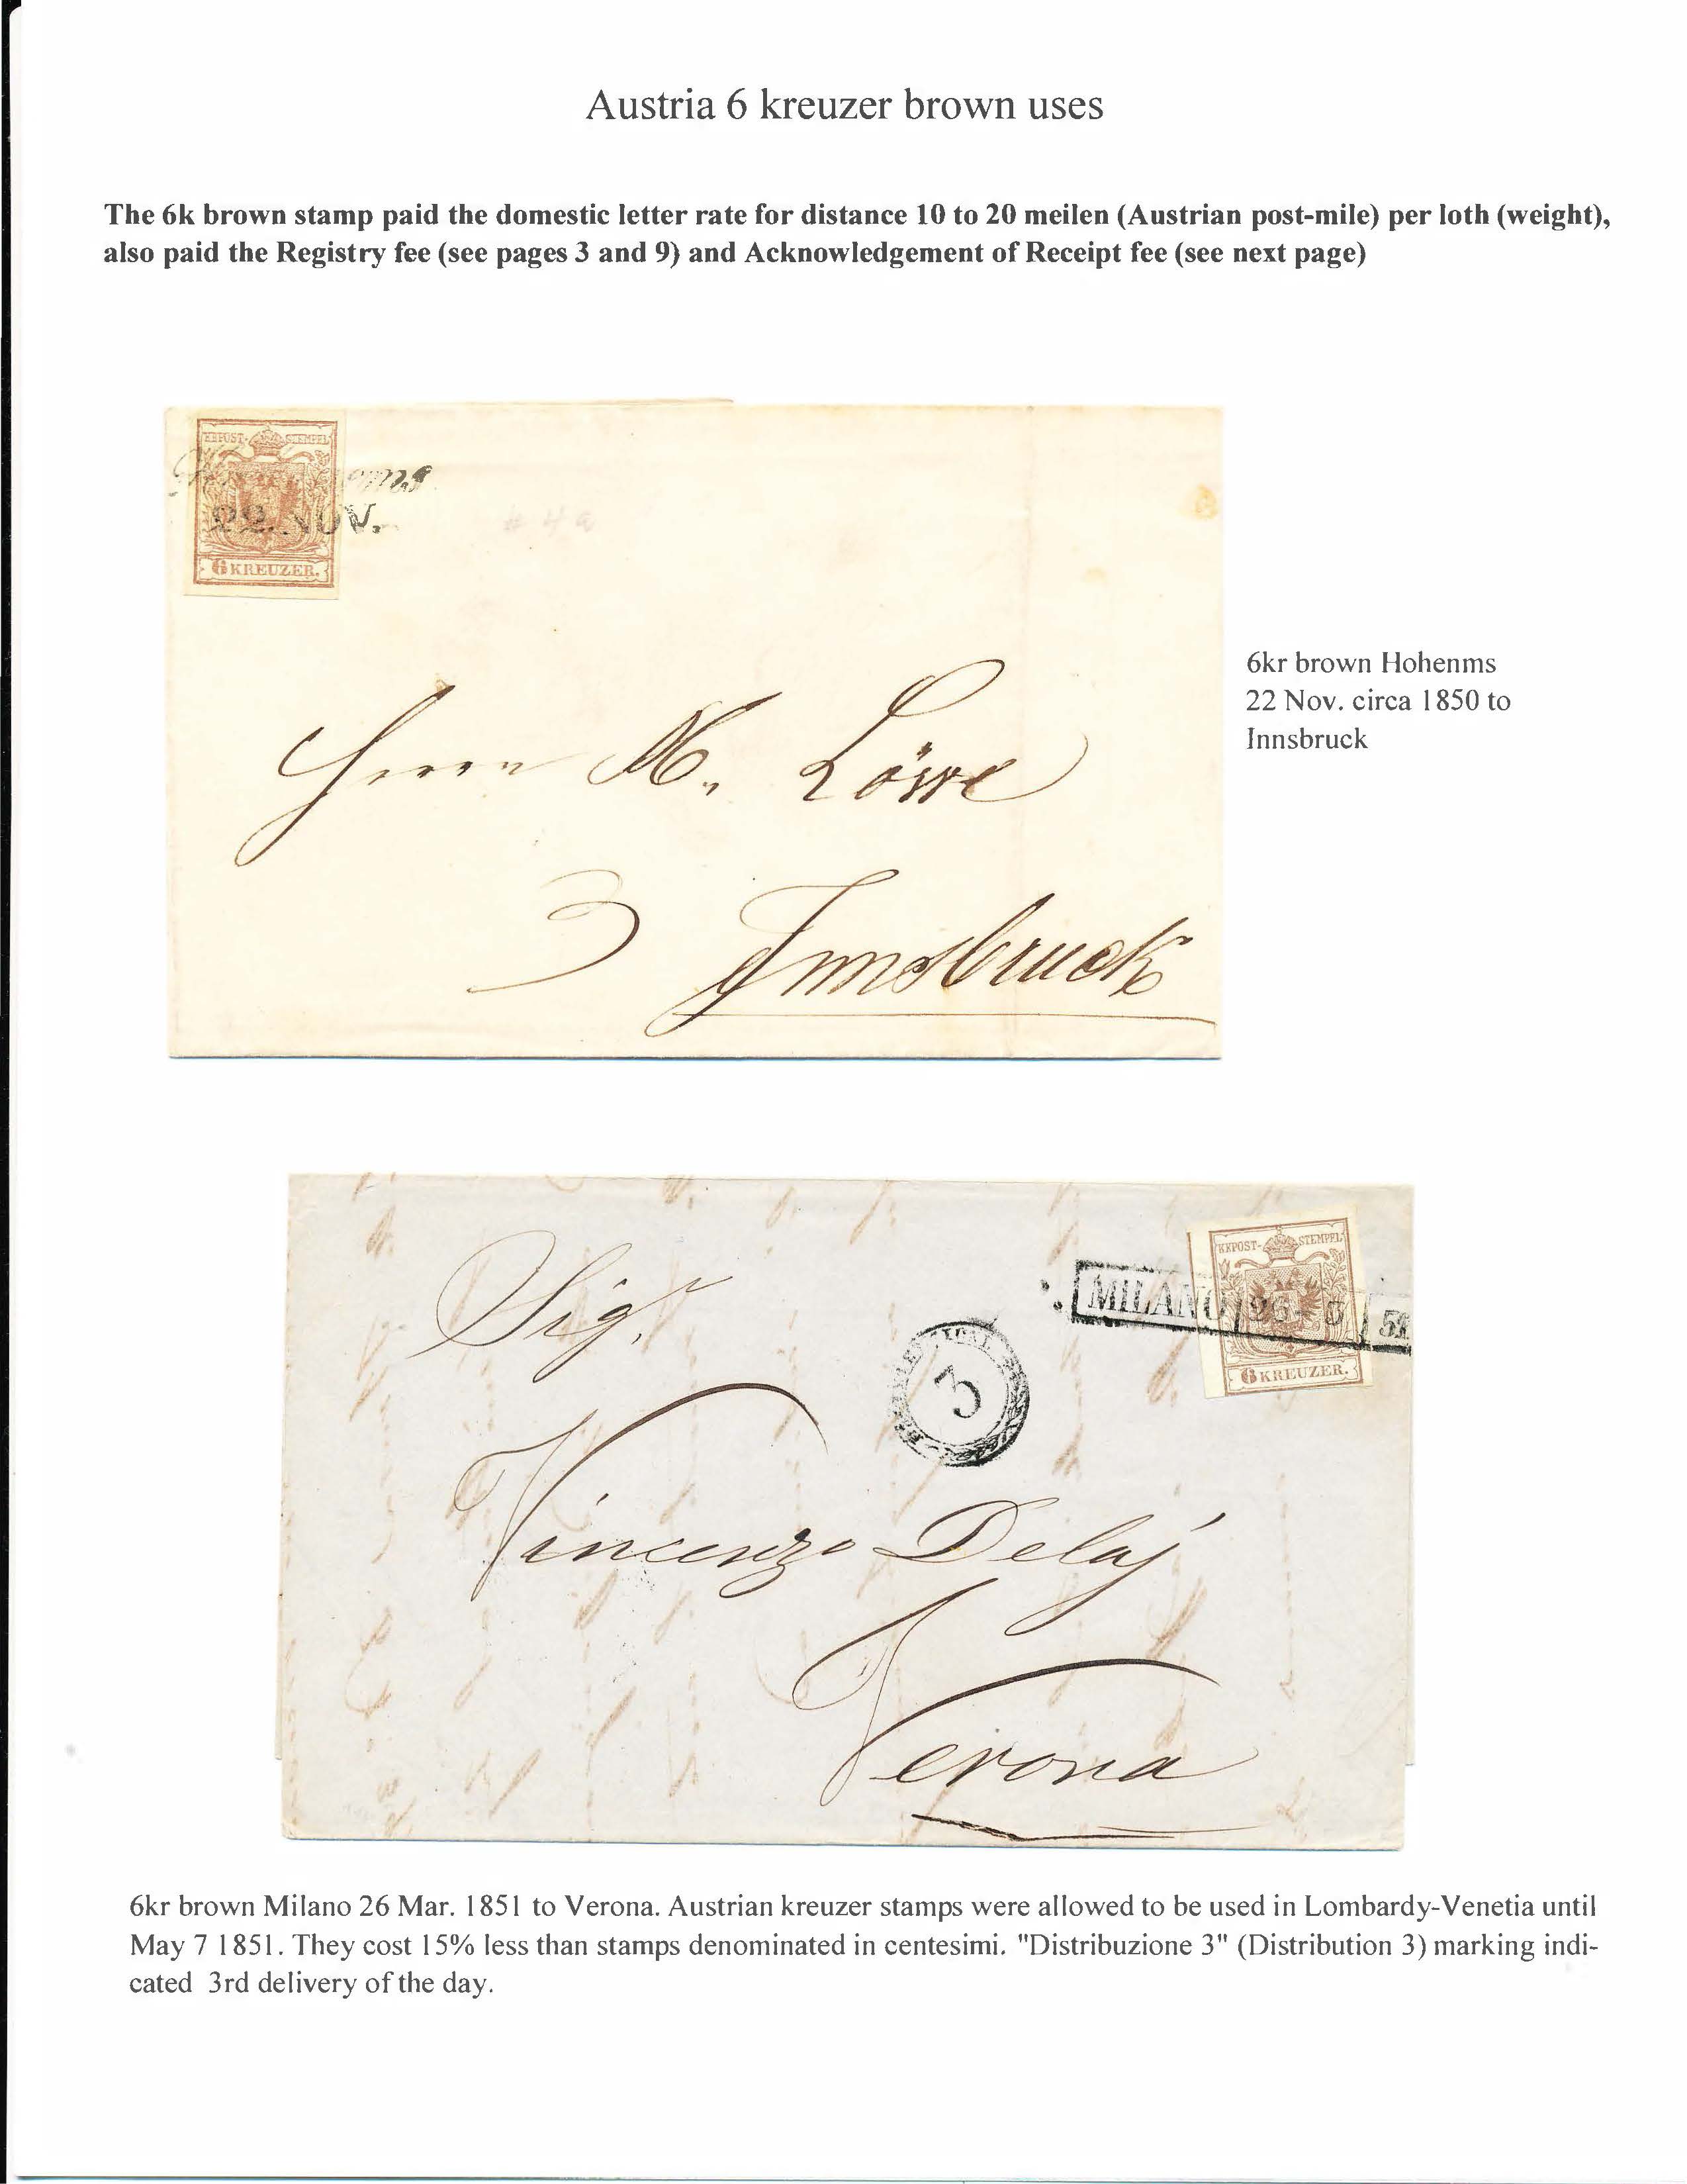 Austria 6 kreuzer brown uses
The 6k brown stamp paid the domestic letter rate for distance 10 to 20 meilen (Austrian post-mile) per loth (weight),
also paid the Registry fee (see pages 3 and 9) and Acknowledgement of Receipt fee (see next page)
KKPOST- STEMPEL
22. NOV.
6 KREUZER.
# 4a
Herrn M. Löwe
3 Innsbruck
6kr brown Hohenms
22 Nov. circa 1850 to
Innsbruck
KKPOST- STEMPEL
MILANO 26 3 51
6 KREUZER.
3
Sigr.
Vincenzo Delaj
Verona
6kr brown Milano 26 Mar. 1851 to Verona. Austrian kreuzer stamps were allowed to be used in Lombardy-Venetia until
May 7 1851. They cost 15% less than stamps denominated in centesimi. "Distribuzione 3" (Distribution 3) marking indi-
cated 3rd delivery of the day.